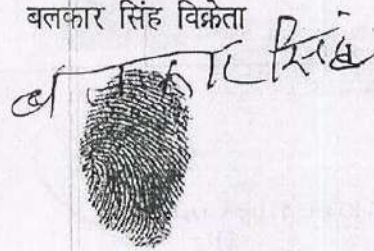 बलकार सिंह विक्रेता
बलकार सिंह